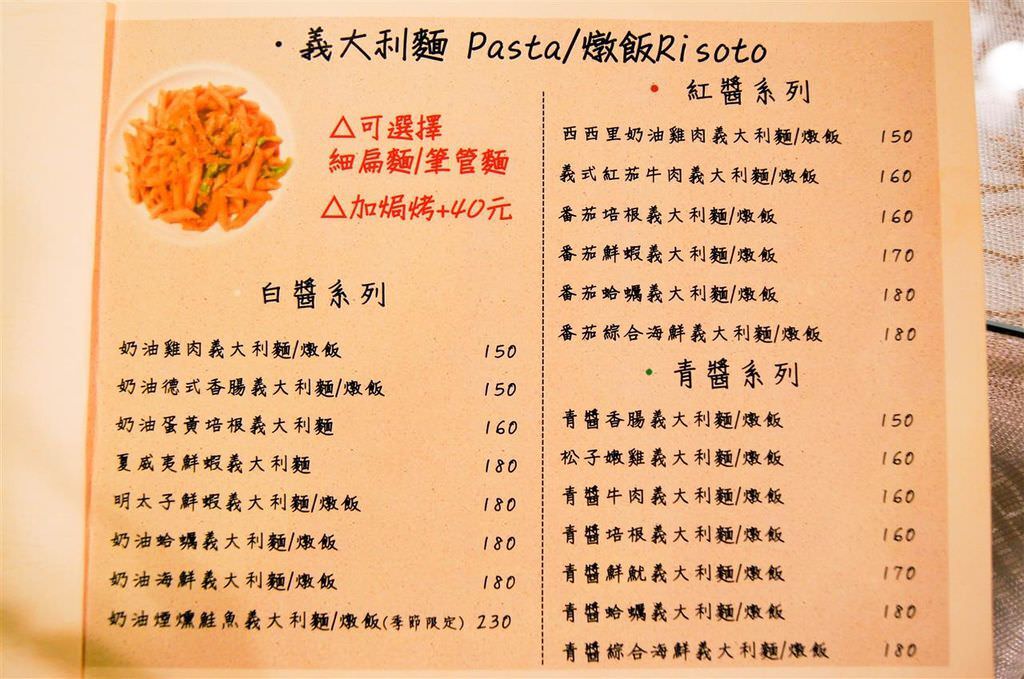 ·義大利麵 Pasta/燉飯Risoto
△可選擇
細扁麵/筆管麵
△加焗烤+40元
白醬系列
奶油雞肉義大利麵/燉飯 150
奶油德式香腸義大利麵/燉飯 150
奶油蛋黃培根義大利麵 160
夏威夷鮮蝦義大利麵 180
明太子鮮蝦義大利麵/燉飯 180
奶油蛤蠣義大利麵/燉飯 180
奶油海鮮義大利麵/燉飯 180
奶油煙燻鮭魚義大利麵/燉飯(季節限定) 230
• 紅醬系列
西西里奶油雞肉義大利麵/燉飯 150
義式紅茄牛肉義大利麵/燉飯 160
番茄培根義大利麵/燉飯 160
番茄鮮蝦義大利麵/燉飯 170
番茄蛤蠣義大利麵/燉飯 180
番茄綜合海鮮義大利麵/燉飯 180
• 青醬系列
青醬香腸義大利麵/燉飯 150
松子嫩雞義大利麵/燉飯 160
青醬牛肉義大利麵/燉飯 160
青醬培根義大利麵/燉飯 160
青醬鮮魷義大利麵/燉飯 170
青醬蛤蠣義大利麵/燉飯 180
青醬綜合海鮮義大利麵/燉飯 180